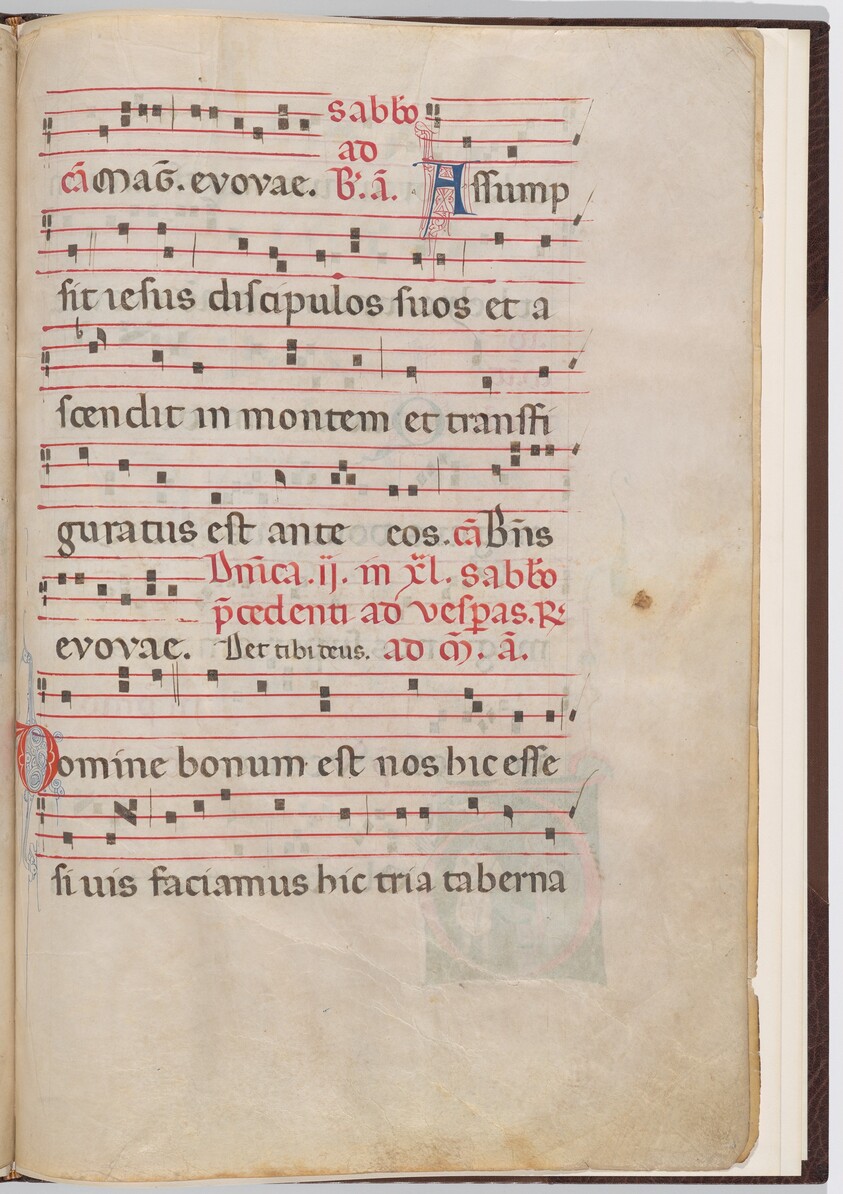 sabb̄o
ad
cā maḡ. evovae. B̄. ā. Assump
sit iesus discipulos suos et a
scendit in montem et transfi
guratus est ante eos. cā Bn̄s
Dn̄ica. ij. in x̄l. sabb̄o
p̄cedenti ad vesp̄as. R̄
evovae. Det tibi deus. ad m̄. ā.
Domine bonum est nos hic esse
si uis faciamus hic tria taberna